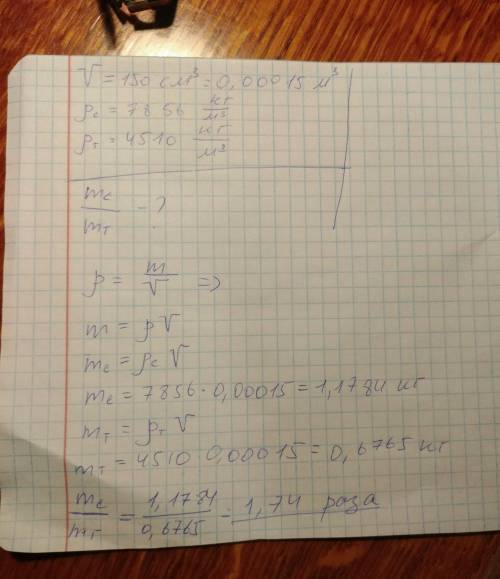 V = 150 см³ = 0,00015 м³
ρс = 7856 кг/м³
ρт = 4510 кг/м³
mс/mт - ?
ρ = m/V =>
m = ρV
mс = ρс V
mс = 7856 · 0,00015 = 1,1784 кг
mт = ρт V
mт = 4510 · 0,00015 = 0,6765 кг
mс/mт = 1,1784/0,6765 = 1,74 раза